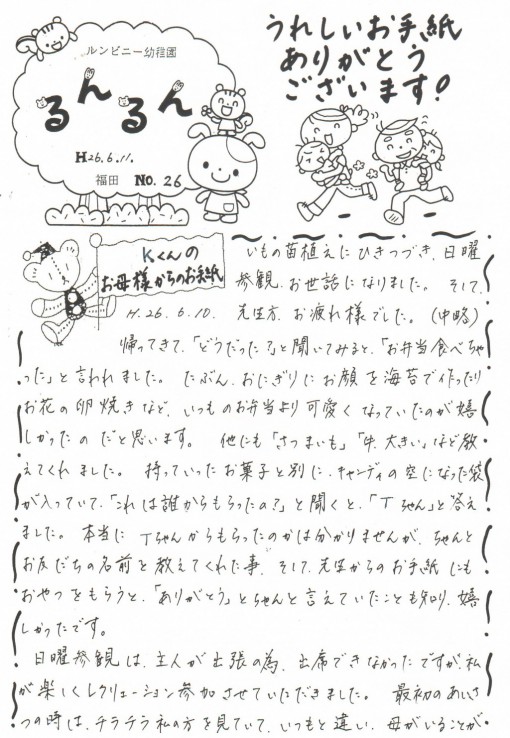 ルンビニー幼稚園
るんるん
H26.6.11.
福田 No.26
うれしいお手紙
ありがとう
ございます!
Kくんの
お母様からのお手紙
H.26.6.10.
いもの苗植えにひきつづき、日曜
参観、お世話になりました。そして、
先生方、お疲れ様でした。(中略)
帰ってきて、「どうだった?」と聞いてみると、「お弁当食べちゃ
った」と言われました。たぶん、おにぎりにお顔を海苔で作ったり
お花の卵焼きなど、いつものお弁当より可愛くなっていたのが嬉
しかったのだと思います。他にも「さつまいも」「牛、大きい」など教
えてくれました。持っていったお菓子と別に、キャンディの空になった袋
が入っていて、「これは誰からもらったの?」と聞くと、「Tちゃん」と答え
ました。本当にTちゃんからもらったのかは分かりませんが、ちゃんと
お友だちの名前を教えてくれた事、そして、先生からのお手紙にも
おやつをもらうと、「ありがとう」とちゃんと言えていたことも知り、嬉
しかったです。
日曜参観は、主人が出張の為、出席できなかったですが、私
が楽しくレクリェーション参加させていただきました。最初のあいさ
つの時は、チラチラ私の方を見ていて、いつもと違い、母がいることが